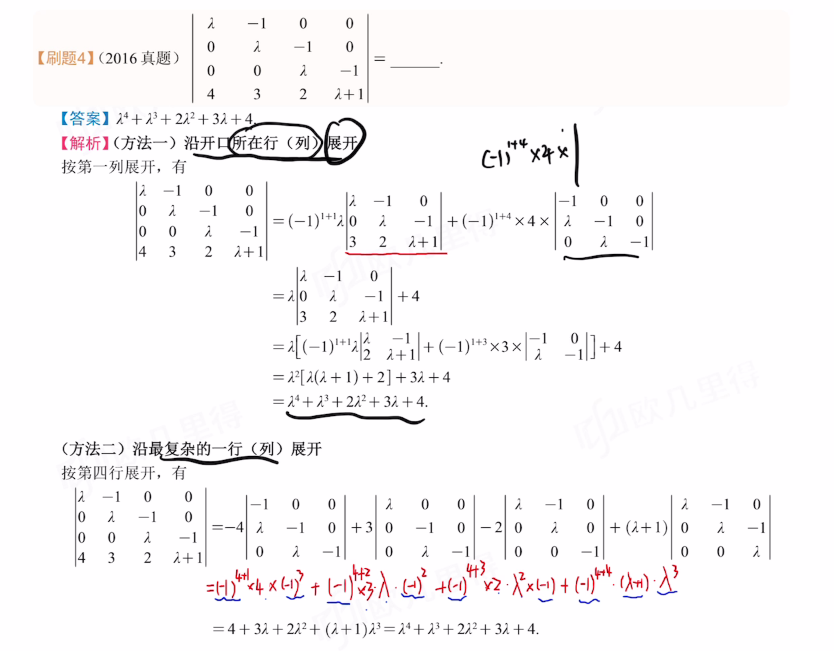 【刷题4】(2016 真题) | λ −1 0 0 |
| 0 λ −1 0 |
| 0 0 λ −1 |
| 4 3 2 λ+1 | = ______.
【答案】λ⁴+λ³+2λ²+3λ+4.
【解析】(方法一) 沿开口所在行(列)展开
(-1)¹⁺⁴×4×|
按第一列展开,有
| λ −1 0 0 |
| 0 λ −1 0 |
| 0 0 λ −1 |
| 4 3 2 λ+1 |
=(−1)¹⁺¹λ | λ −1 0 |
| 0 λ −1 |
| 3 2 λ+1 |
+(−1)¹⁺⁴×4× | −1 0 0 |
| λ −1 0 |
| 0 λ −1 |
=λ | λ −1 0 |
| 0 λ −1 |
| 3 2 λ+1 | +4
=λ[(−1)¹⁺¹λ | λ −1 |
| 2 λ+1 |
+(−1)¹⁺³×3× | −1 0 |
| λ −1 | ]+4
=λ²[λ(λ+1)+2]+3λ+4
=λ⁴+λ³+2λ²+3λ+4.
(方法二) 沿最复杂的一行(列)展开
按第四行展开,有
| λ −1 0 0 |
| 0 λ −1 0 |
| 0 0 λ −1 |
| 4 3 2 λ+1 |
=−4 | −1 0 0 |
| λ −1 0 |
| 0 λ −1 |
+3 | λ 0 0 |
| 0 −1 0 |
| 0 λ −1 |
−2 | λ −1 0 |
| 0 λ 0 |
| 0 0 −1 |
+(λ+1) | λ −1 0 |
| 0 λ −1 |
| 0 0 λ |
=(-1)⁴⁺¹×4×(-1)³+(-1)⁴⁺²×3·λ·(-1)²+(-1)⁴⁺³×2·λ²×(-1)+(-1)⁴⁺⁴·(λ+1)·λ³
=4+3λ+2λ²+(λ+1)λ³=λ⁴+λ³+2λ²+3λ+4.
欧几里得
欧几里得